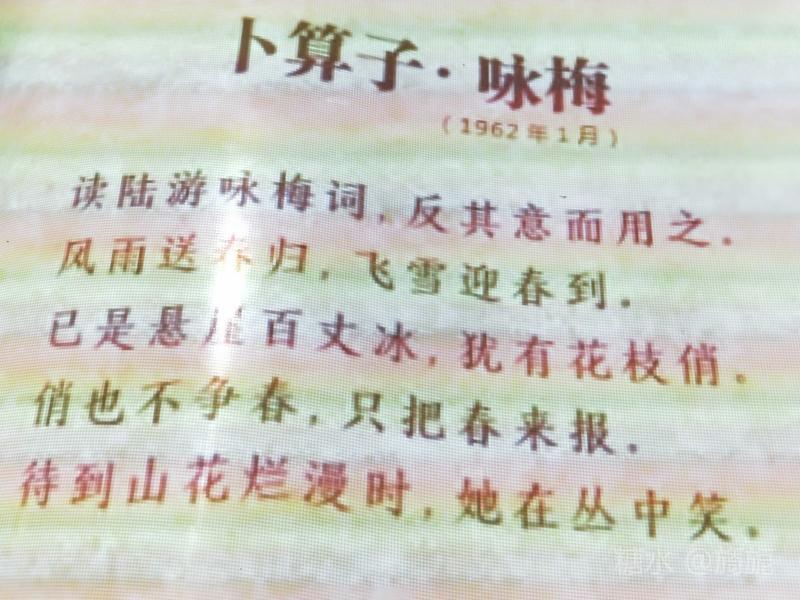 卜算子·咏梅
（1962年1月）
读陆游咏梅词，反其意而用之。
风雨送春归，飞雪迎春到。
已是悬崖百丈冰，犹有花枝俏。
俏也不争春，只把春来报。
待到山花烂漫时，她在丛中笑。